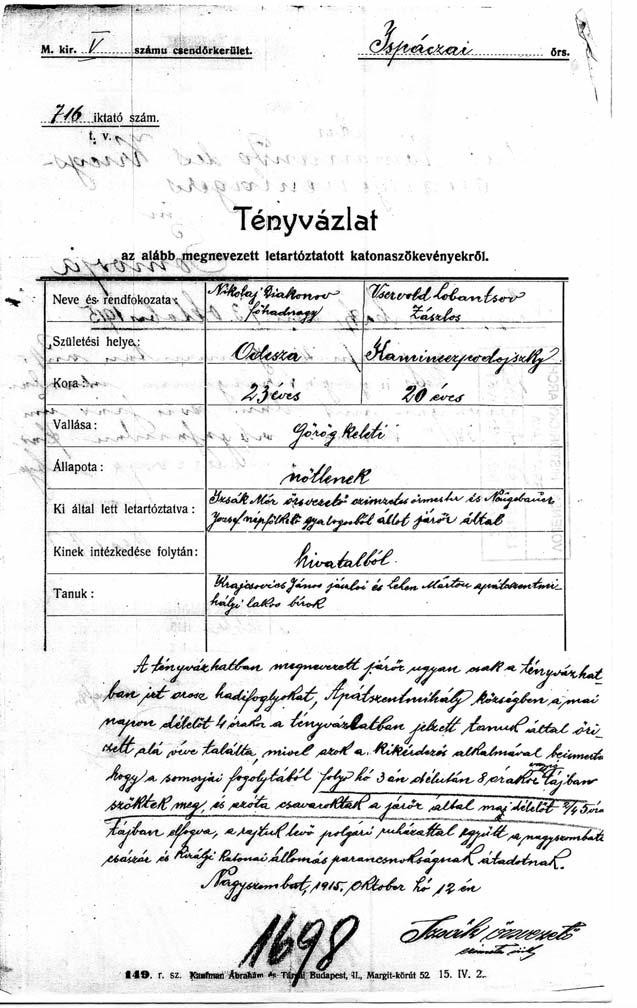 M. kir. V számu csendőrkerület.
Ispáczai örs.
716 iktató szám.
t. v.
Tényvázlat
az alább megnevezett letartóztatott katonaszökevényekről.
Neve és rendfokozata: Nikolaj Diakonov főhadnagy Vsevold Lobantsov Zászlos
Születési helye: Odesza Kaminiezpodojszky
Kora: 23 éves 20 éves
Vallása: Görög keleti
Állapota: nőtlenek
Ki által lett letartóztatva: Izsák Mór őrsvezető czimzetes őrmester és Naigebauer
József népfölkelő gyalogosból állot járőr által
Kinek intézkedése folytán: hivatalból.
Tanuk: Krajcsovics János járási és Lelen Márton apátszentmi-
hályi lakos birok
A tényvázlatban megnevezett járőr ugyan csak a tényvázlat-
ban irt orosz hadifoglyokat, Apátszentmihály községben a mai
napon délelőt 4 órakor a tényvázlatban jelzett tanuk által őri-
zett alá véve találta, mivel azok a kikérdezés alkalmával beismerték
hogy a somorjai fogolytából folyo hó 3án délután 8 órakor vagy tájban
szöktek meg, és azóta csavarogtak a járőr által mai délelőt 3/4 5 óra
tájban elfogva, a rajtuk levő polgári ruházattal együtt a nagyszombati
császár és királyi katonai állomás parancsnokságnak átadotnak.
Nagyszombat, 1915. Oktober hó 12 én
Izsák őrvezető
1698
149. r. sz. Kaufman Ábrahám és Társai Budapest, II., Margit-körút 52. 15. IV. 2.